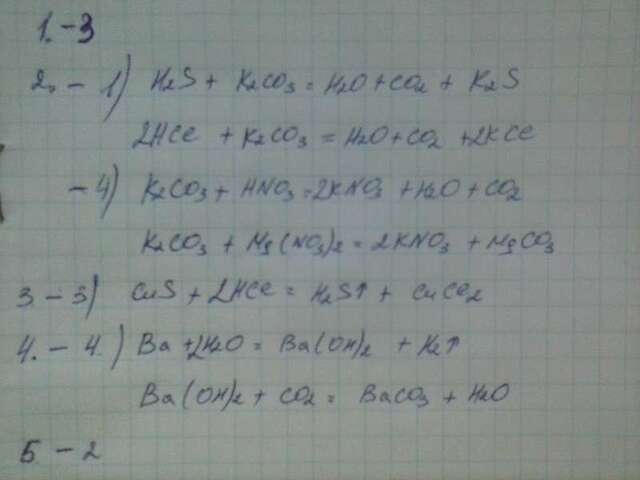 1. - 3
2. - 1) H2S + K2CO3 = H2O + CO2 + K2S
2HCl + K2CO3 = H2O + CO2 + 2KCl
- 4) K2CO3 + HNO3 = 2KNO3 + H2O + CO2
K2CO3 + Mg(NO3)2 = 2KNO3 + MgCO3
3 - 3) CuS + 2HCl = H2S↑ + CuCl2
4. - 4.) Ba + 2H2O = Ba(OH)2 + H2↑
Ba(OH)2 + CO2 = BaCO3 + H2O
5 - 2